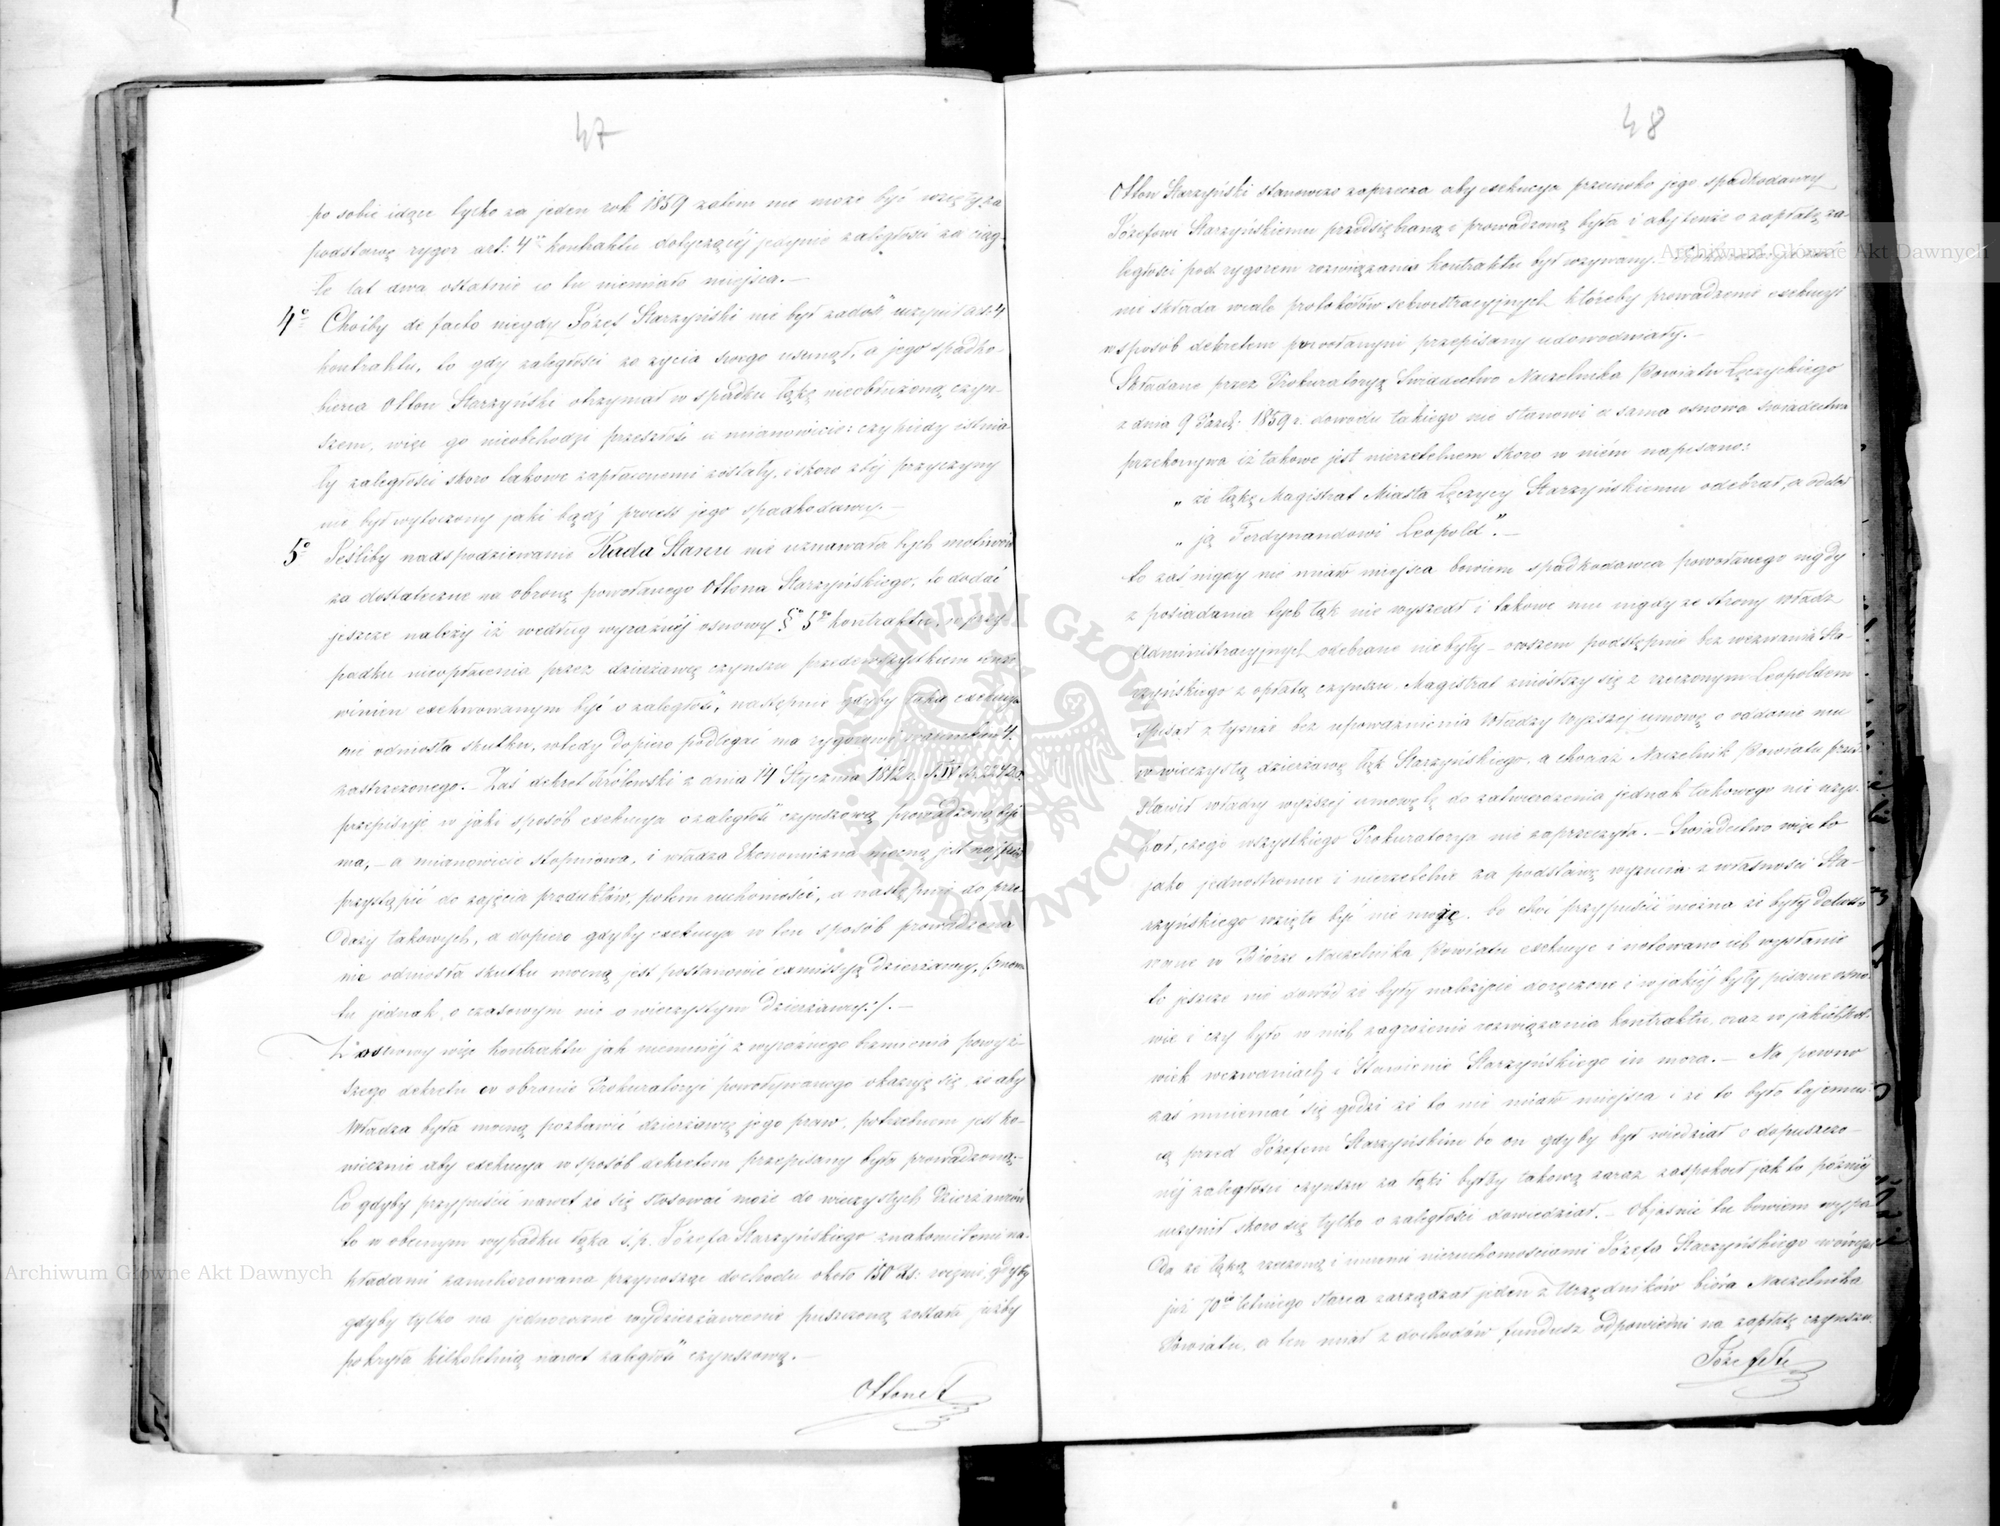 47
po sobie idące tylko za jeden rok 1859 zatem nie może być wzięty za
podstawę rygor art: 4º kontraktu dotyczącéj jedynie zaległości za ciąg-
łe lat dwa ostatnie co tu niemiało miejsca.–
4º Choćby de facto niegdy Józef Starzyński nie był zadość uczynił art: 4
kontraktu, to gdy zaległości za życia swego usunął, a jego spadko-
bierca Otton Starzyński otrzymał w spadku łąkę nieobdłużoną czyn-
szem, więc go nieobchodzi przeszłość a mianowicie: czy kiedy istnia-
ły zaległości skoro takowe zapłaconemi zostały, i skoro z téj przyczyny
nie był wytoczony jaki bądź process jego spadkodawcy.–
5º Jeśliby nadspodziewanie Rada Stanu nie uznawała tych motivów
za dostateczne na obronę powołanego Ottona Starzyńskiego, to dodać
jeszcze należy iż według wyraźnéj osnowy § 5go kontraktu, w przy-
padku nieopłacenia przez dzierżawcę czynszu przedewszystkiem
winien exekwowanym być o zaległość, następnie gdyby taka exekucya
nie odniosła skutku, wtedy dopiero podlegać ma rygorowi warunkiem 4
zastrzeżonego.– Zaś dekret Królewski z dnia 14 Stycznia 1812 r.
przepisuje w jaki sposób exekucya o zaległość czynszową prowadzoną być
ma,– a mianowicie stopniowo, i władza Ekonomiczna mocną jest najprzód
przystąpić do zajęcia produktów, potem ruchomości, a następnie do prze-
daży takowych, a dopiero gdyby exekucya w ten sposób prowadzona
nie odniosła skutku mocną jest postanowić exmissyją dzierżawcy, (:mowa
tu jednak, o czasowym nie o wieczystym dzierżawcy:).–
Z osnowy więc kontraktu jak niemniéj z wyraźnego brzmienia powyż-
szego dekretu w obronie Prokuratoryi powoływanego okazuje się, że aby
Władza była mocną pozbawić dzierżawcę jego praw, potrzebnem jest ko-
niecznie aby exekucya w sposób dekretem przepisany była prowadzoną.–
Co gdyby przypuścić nawet że się stosować może do wieczystych dzierżawców
to w obecnym wypadku łąka ś.p. Józefa Starzyńskiego znakomitemi na-
kładami zameliorowana przynosząc dochodu około 150 Rs:
gdyby tylko na jednoroczne wydzierżawienie puszczoną została jużby
pokryła kilkoletnią nawet zaległość czynszową.–
48
Otton Starzyński stanowczo zaprzecza aby exekucya przeciwko jego spadkodawcy
Józefowi Starzyńskiemu przedsiębraną i prowadzoną była i aby tenże o zapłatę za-
ległości pod rygorem rozwiązania kontraktu był wzywany.
nie składa wcale protokółów sekwestracyjnych któreby prowadzenie exekucyi
w sposób dekretem powołanym przepisany udowodniały.–
Składane przez Prokuratoryę Świadectwo Naczelnika Powiatu Łęczyckiego
z dnia 9 Paźd. 1859 r. dowodu takiego nie stanowi a sama osnowa świadectwa
przekonywa iż takowe jest nierzetelnem skoro w niém napisano:
„ że łąkę Magistrat Miasta Łęczycy Starzyńskiemu odebrał, a oddał
„ ją Ferdynandowi Leopold”.–
to zaś nigdy nie miało miejsca bowiem spadkodawca powołanego nigdy
z posiadania tych łąk nie wyszedł i takowe mu nigdy ze strony władz
Administracyjnych odebrane niebyły – owszem podstępnie bez wezwania Sta-
rzyńskiego z opłatą czynszu, Magistrat zniósłszy się z rzeczonym Leopoldem
spisał z tymże bez upoważnienia Władzy Wyższej umowę o oddanie mu
w wieczystą dzierżawę łąk Starzyńskiego, a chociaż Naczelnik Powiatu przed-
stawił władzy wyższej umowę tę do zatwierdzenia jednak takowego nie uzys-
kał, czego wszystkiego Prokuratorya nie zaprzeczyła.– Świadectwo więc to
jako jednostronne i nierzetelne za podstawę wyzucia z własności Sta-
rzyńskiego wzięte być nie może. bo choć przypuścić można że były
wane w Biórze Naczelnika Powiatu exekucye i notowano ich wysłanie
to jeszcze nie dowód że były należycie doręczone i w jakiéj były pisane osno-
wie i czy było w nich zagrożenie rozwiązania kontraktu, oraz w jakichkol-
wiek wezwaniach i Stawienie Starzyńskiego in mora.– Na pewno
zaś mniemać się godzi że to nie miało miejsca i że to było tajemni-
cą przed Józefem Starzyńskim bo on gdyby był wiedział o dopuszczo-
néj zaległości czynszu za łąki byłby takową zaraz zaspokoił jak to późniéj
uczynił skoro się tylko o zaległości dowiedział.– Objaśnić tu bowiem wypa-
da że łąką rzeczoną i innemi nieruchomościami Józefa Starzyńskiego wówczas
już 70cio letniego starca zarządzał jeden z Urzędników bióra Naczelnika
Powiatu, a ten miał z dochodów fundusz odpowiedni na zapłatę czynszu.
Archiwum Główne Akt Dawnych
Archiwum Główne Akt Dawnych
ARCHIWUM GŁÓWNE AKT DAWNYCH